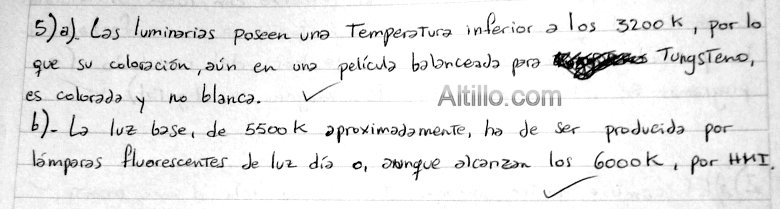 5) a). Las luminarias poseen una Temperatura inferior a los 3200 K, por lo
que su coloración, aún en una película balanceada para Tungsteno,
es colorada y no blanca.
Altillo.com
b).- La luz base, de 5500 K aproximadamente, ha de ser producida por
lámparas fluorescentes de luz día o, aunque alcanzan los 6000 K, por HMI.